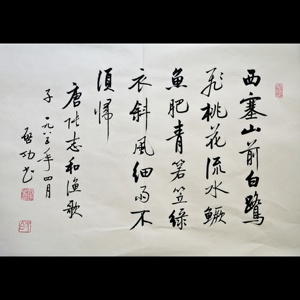 西塞山前白鹭
飞桃花流水鳜
鱼肥青箬笠绿
衣斜风细雨不
须归
唐张志和渔歌
子 一九八三年四月
启功书